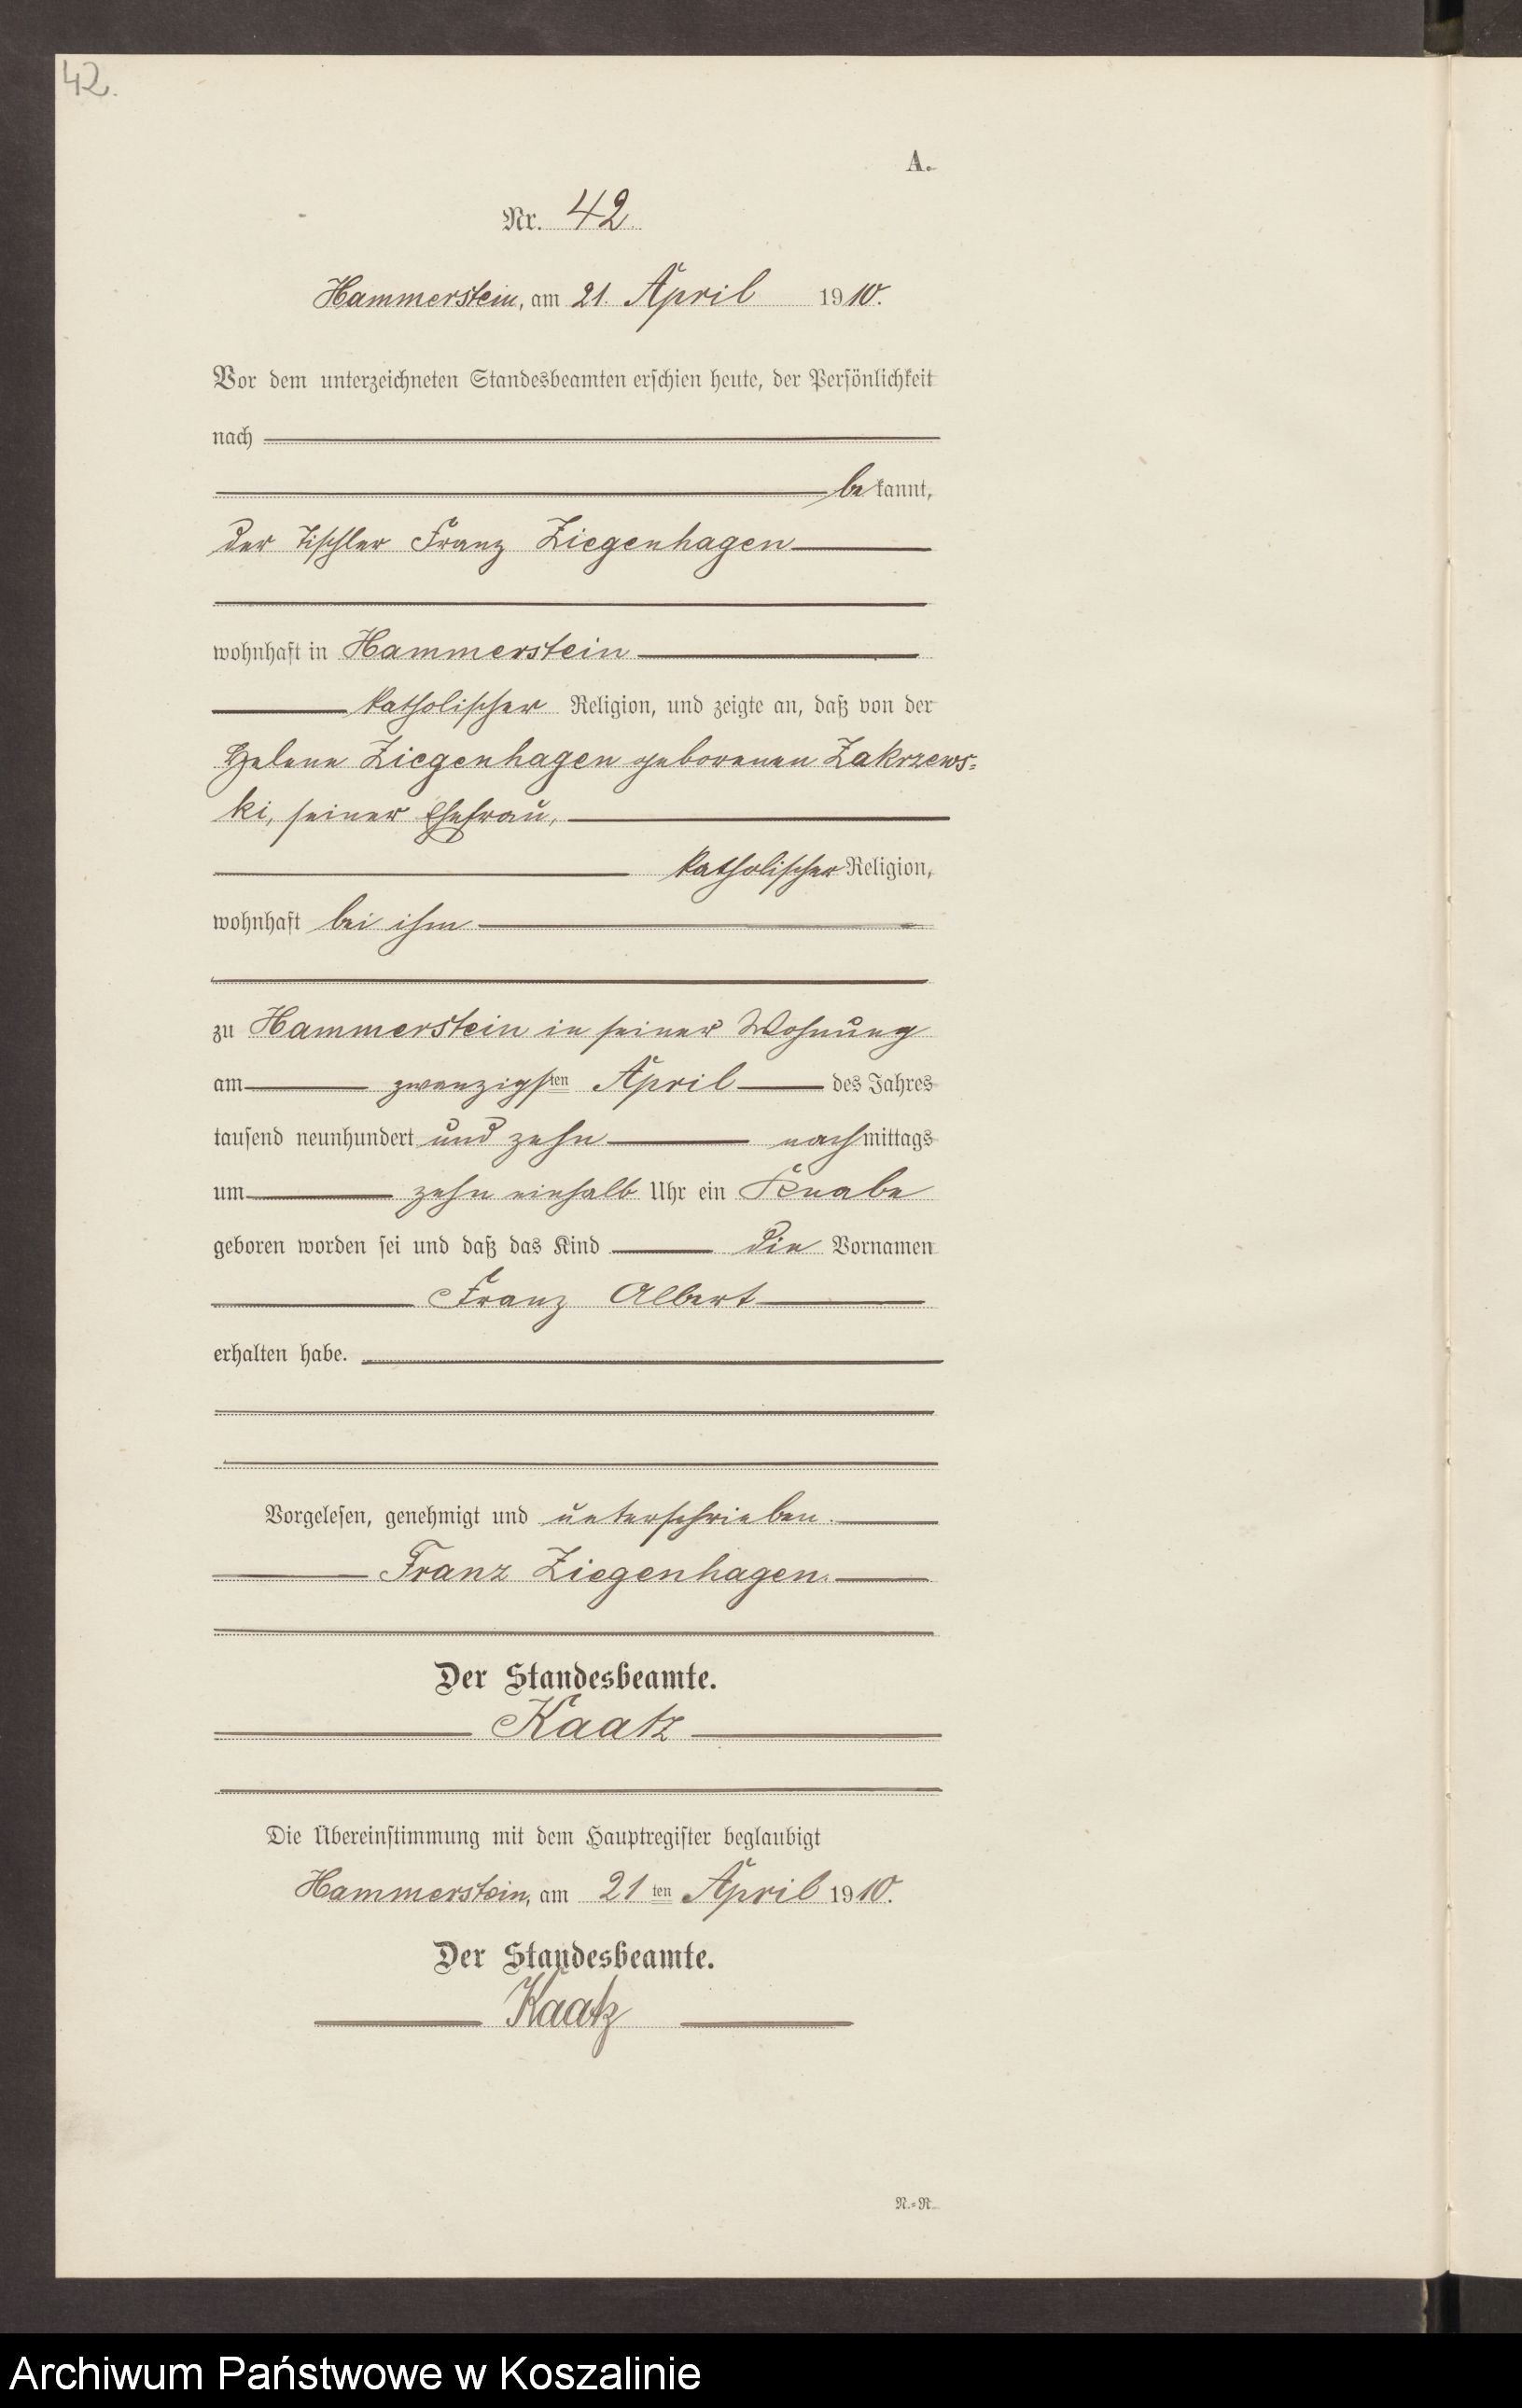 42.
A.
Nr. 42.
Hammerstein, am 21. April 1910.
Vor dem unterzeichneten Standesbeamten erschien heute, der Persönlichkeit
nach
bekannt,
der Tischler Franz Ziegenhagen
wohnhaft in Hammerstein
katholischer Religion, und zeigte an, daß von der
Helene Ziegenhagen geborenen Zakrzews-
ki, seiner Ehefrau,
katholischer Religion,
wohnhaft bei ihm
zu Hammerstein in seiner Wohnung
am zwanzigsten April des Jahres
tausend neunhundert und zehn nachmittags
um zehn einhalb Uhr ein Knabe
geboren worden sei und daß das Kind die Vornamen
Franz Albert
erhalten habe.
Vorgelesen, genehmigt und unterschrieben.
Franz Ziegenhagen.
Der Standesbeamte.
Kaatz
Die Übereinstimmung mit dem Hauptregister beglaubigt
Hammerstein, am 21ten April 1910.
Der Standesbeamte.
Kaatz
N.-R.
Archiwum Państwowe w Koszalinie